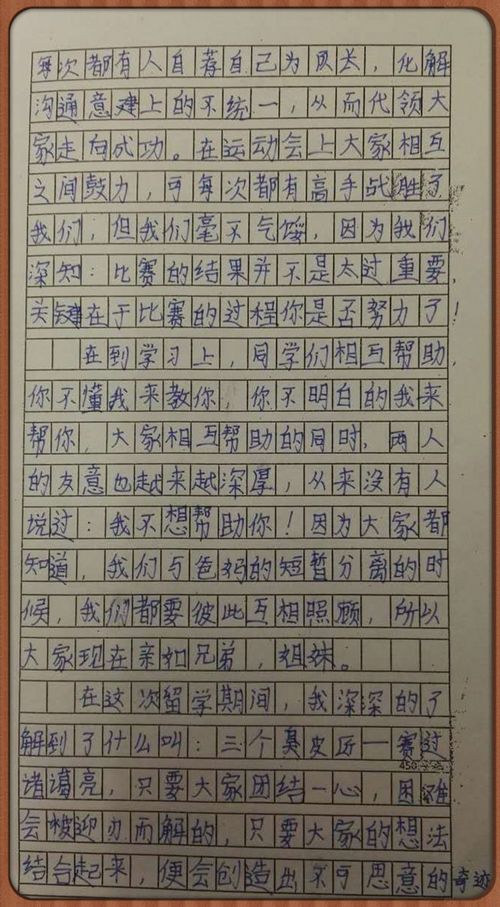 每次都有人自荐自己为队长，化解
沟通意建上的不统一，从而代领大
家走向成功。在运动会上大家相互
之间鼓力，可每次都有高手战胜了
我们，但我们毫不气馁，因为我们
深知：比赛的结果并不是太过重要，
关键在于比赛的过程你是否努力了！
在到学习上，同学们相互帮助，
你不懂我来教你，你不明白的我来
帮你，大家相互帮助的同时，两人
的友意也越来越深厚，从来没有人
说过：我不想帮助你！因为大家都
知道，我们与爸妈的短暂分离的时
候，我们都要彼此互相照顾，所以
大家现在亲如兄弟，姐妹。
在这次留学期间，我深深的了
解到了什么叫：三个臭皮匠一赛过
450
诸葛亮，只要大家团结一心，困难
会被迎办而解的，只要大家的想法
结合起来，便会创造出不可思意的奇迹